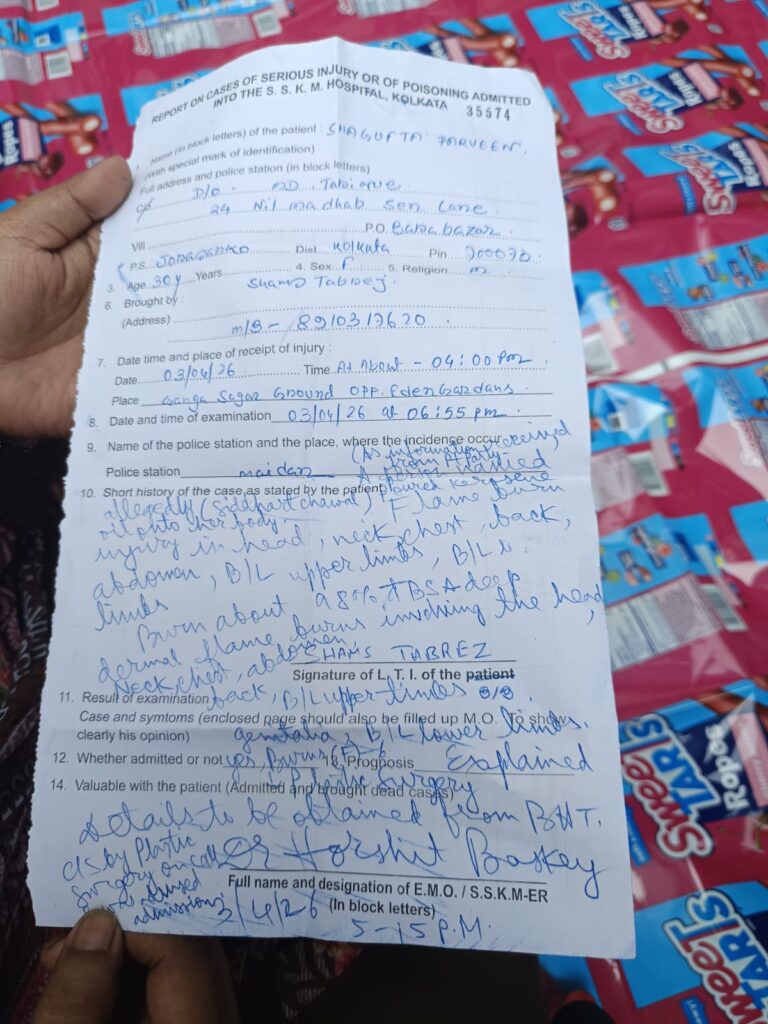 REPORT ON CASES OF SERIOUS INJURY OR OF POISONING ADMITTED
INTO THE S. S. K. M. HOSPITAL, KOLKATA 35574
1. Name (In block letters) of the patient : SHAGUFTA PARVEEN.
(With special mark of identification)
Full address and police station (in block letters)
D/O - MD. Tabique
24 Nil madhab Sen Lane
Vill P.O. Barabazar
P.S. JORASANKO Dist. Kolkata Pin
3. Age 30y Years 4. Sex F 5. Religion m
6. Brought by : Shams Tabrej
(Address)
m/B - 8910313620
7. Date time and place of receipt of injury :
Date 03/04/26 Time At About - 04:00 Pm
Place Ganga Sagar Ground opp. Eden Gardans
8. Date and time of examination 03/04/26 at 06:55 pm
9. Name of the police station and the place, where the incidence occur
(As information received
from P. Party
Police station maidan
A person named
10. Short history of the case as stated by the patient
allegedly poured kerosene
oil onto her body Flame burn
injury in head, neck, chest, back,
abdomen, B/L upper limbs, B/L
limbs
Burn about 98% TBSA deep
dermal flame burns involving the head,
Neck, chest, abdomen,
SHAMS TABREZ
Signature of L. T. I. of the patient
11. Result of examination back, B/L upper limbs
Case and symtoms (enclosed page should also be filled up M.O. To show
clearly his opinion) genitalia, B/L lower limbs.
12. Whether admitted or not yes, Burns 13. Prognosis Explained
Plastic Surgery
14. Valuable with the patient (Admitted and brought dead cases)
Details to be obtained from BHT.
C/S by Plastic
Surgery on call
advised
admission
Dr Harshit Baskey
Full name and designation of E.M.O. / S.S.K.M-ER
(In block letters)
3/4/26
5-15 P.M.
SweeTARTS
Ropes